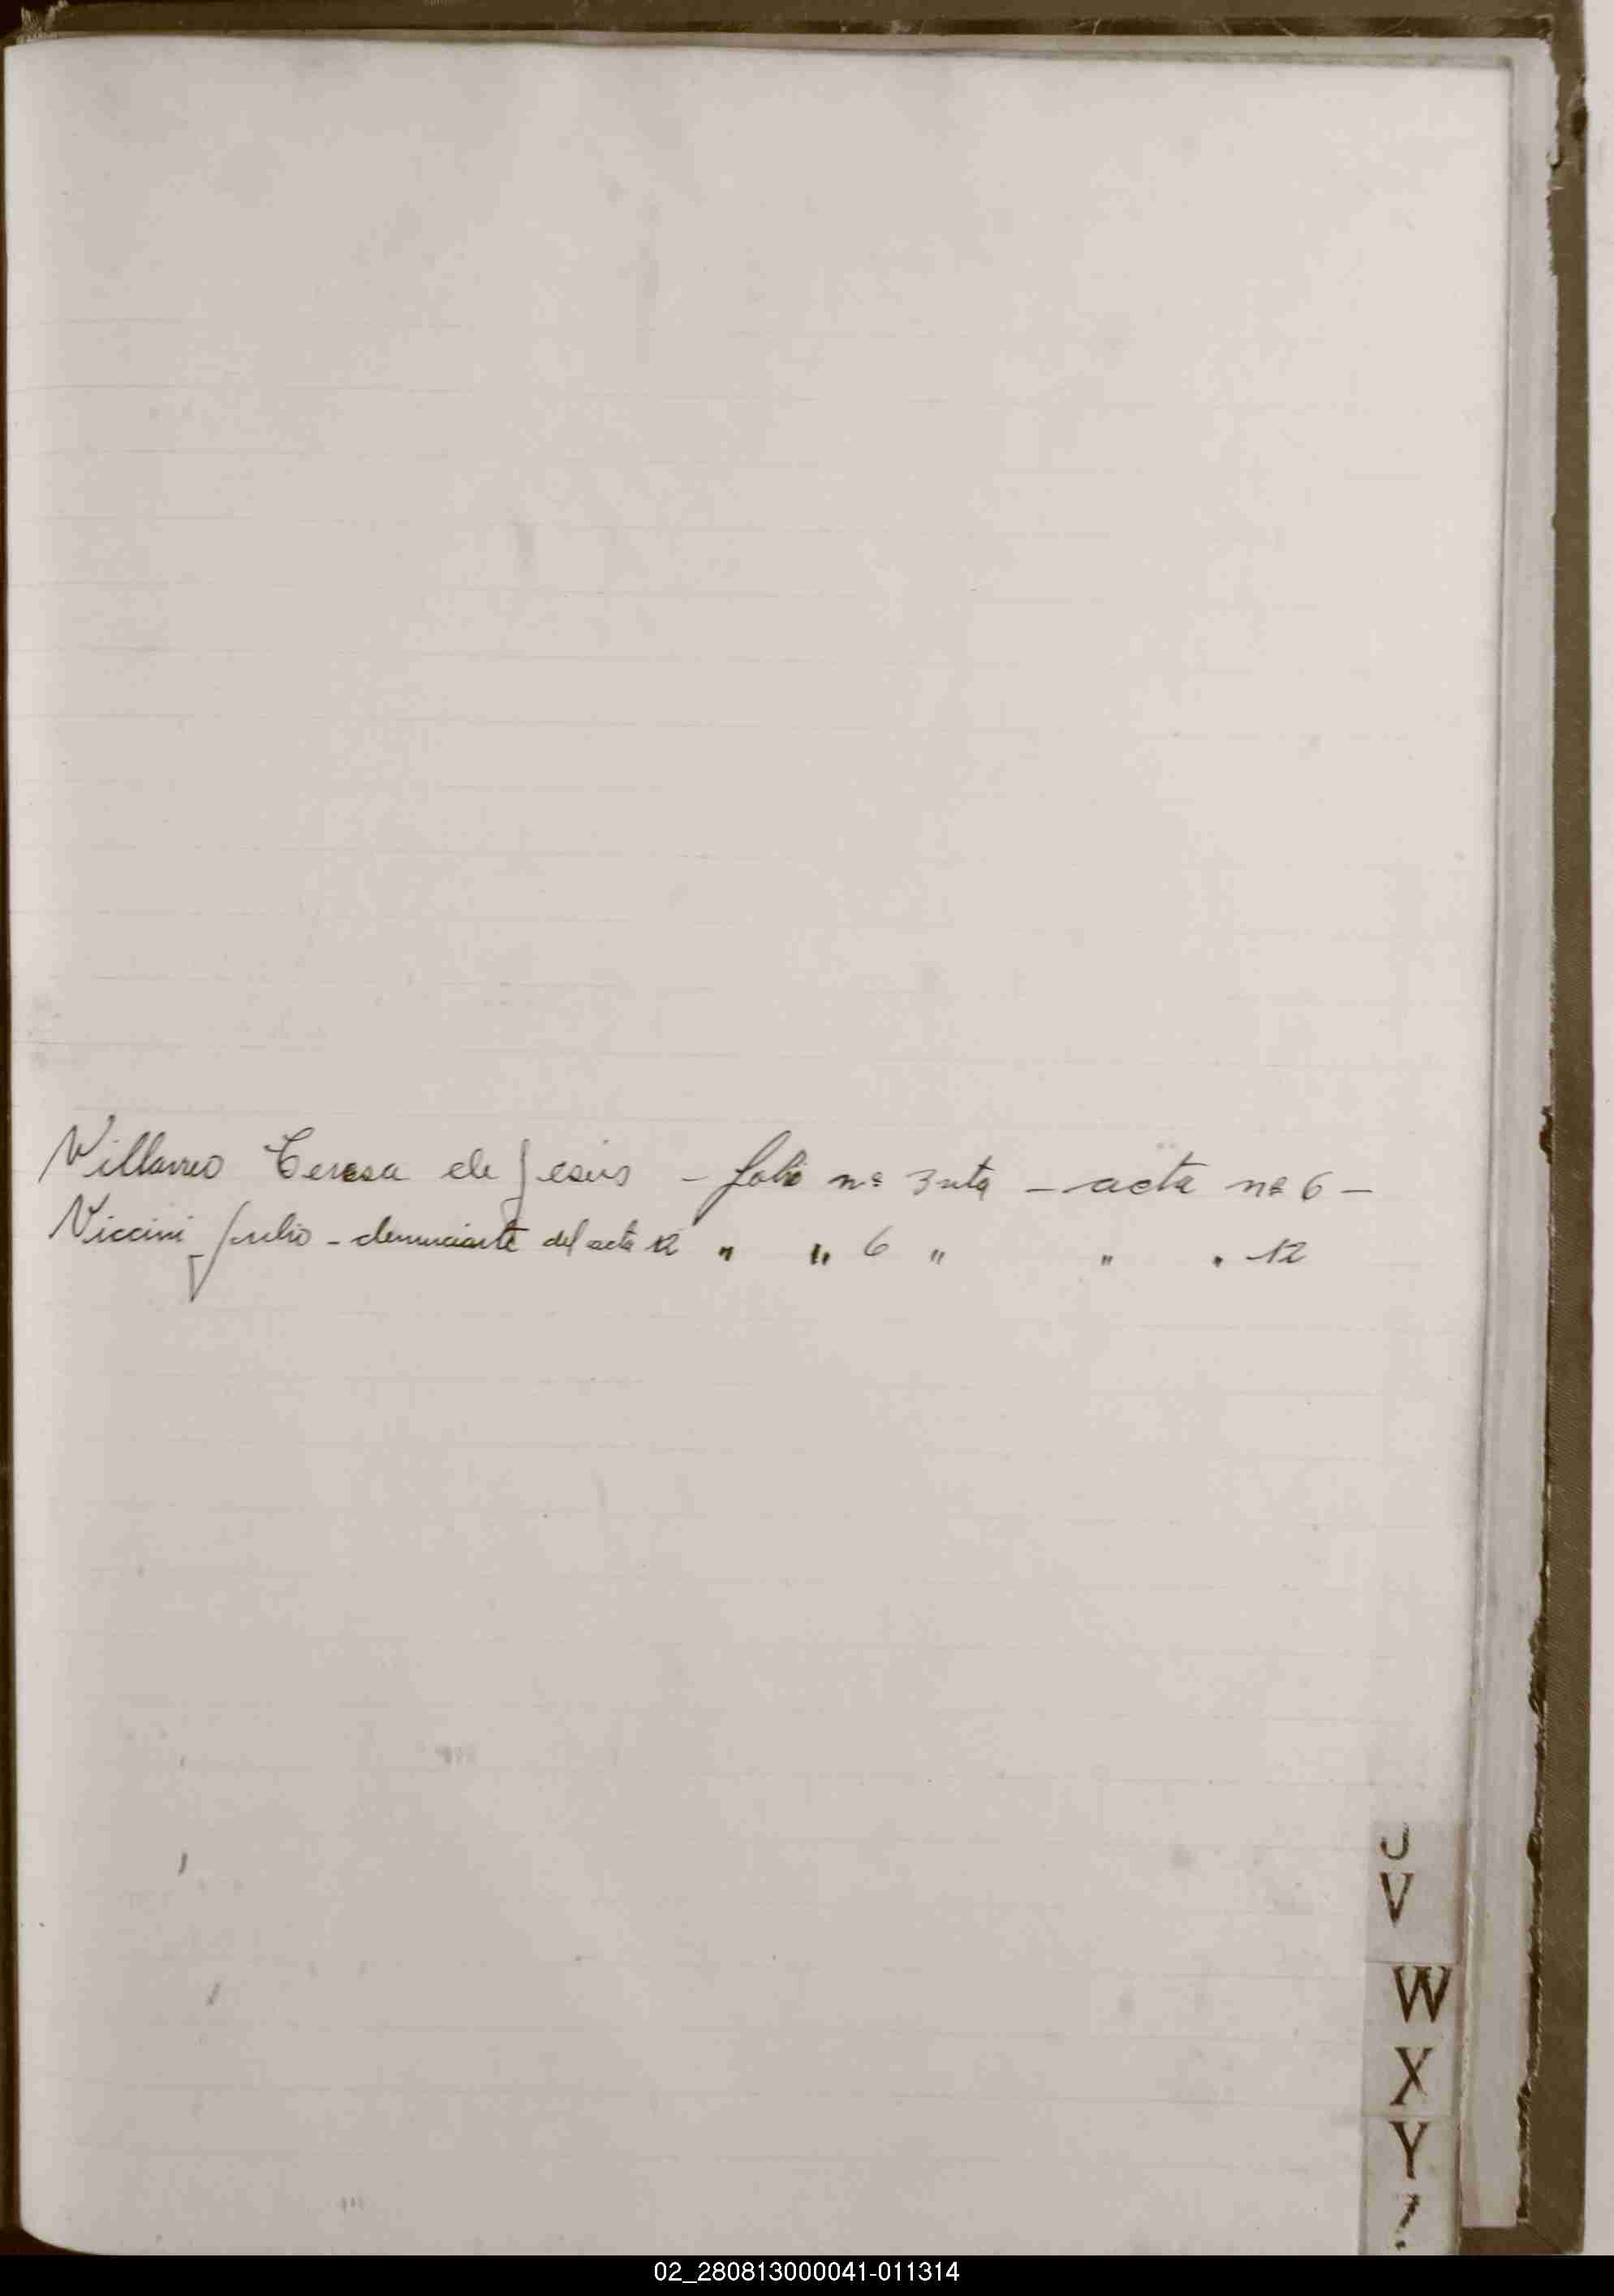 Villarreo Teresa de Jesús - folio nº 3 vta - acta nº 6 -
Viccini Julio - denunciante del acta 12 " " 6 " " " 12
U
V
W
X
Y
02_280813000041-011314